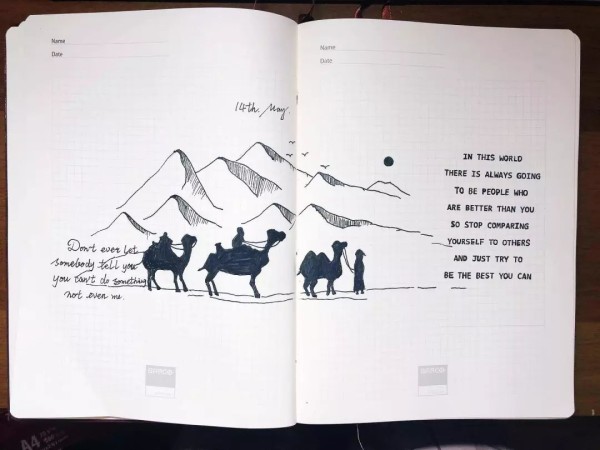 Name
Date
14th. May.
Don't ever let
somebody tell you
you can't do something
not even me.
Name
Date
IN THIS WORLD
THERE IS ALWAYS GOING
TO BE PEOPLE WHO
ARE BETTER THAN YOU
SO STOP COMPARING
YOURSELF TO OTHERS
AND JUST TRY TO
BE THE BEST YOU CAN
A4